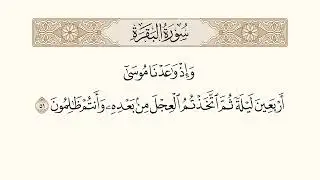 سُورَةُ البَقَرَةِ
وَإِذْ وَٰعَدْنَا مُوسَىٰٓ
أَرْبَعِينَ لَيْلَةً ثُمَّ ٱتَّخَذْتُمُ ٱلْعِجْلَ مِنۢ بَعْدِهِۦ وَأَنتُمْ ظَٰلِمُونَ ٥١